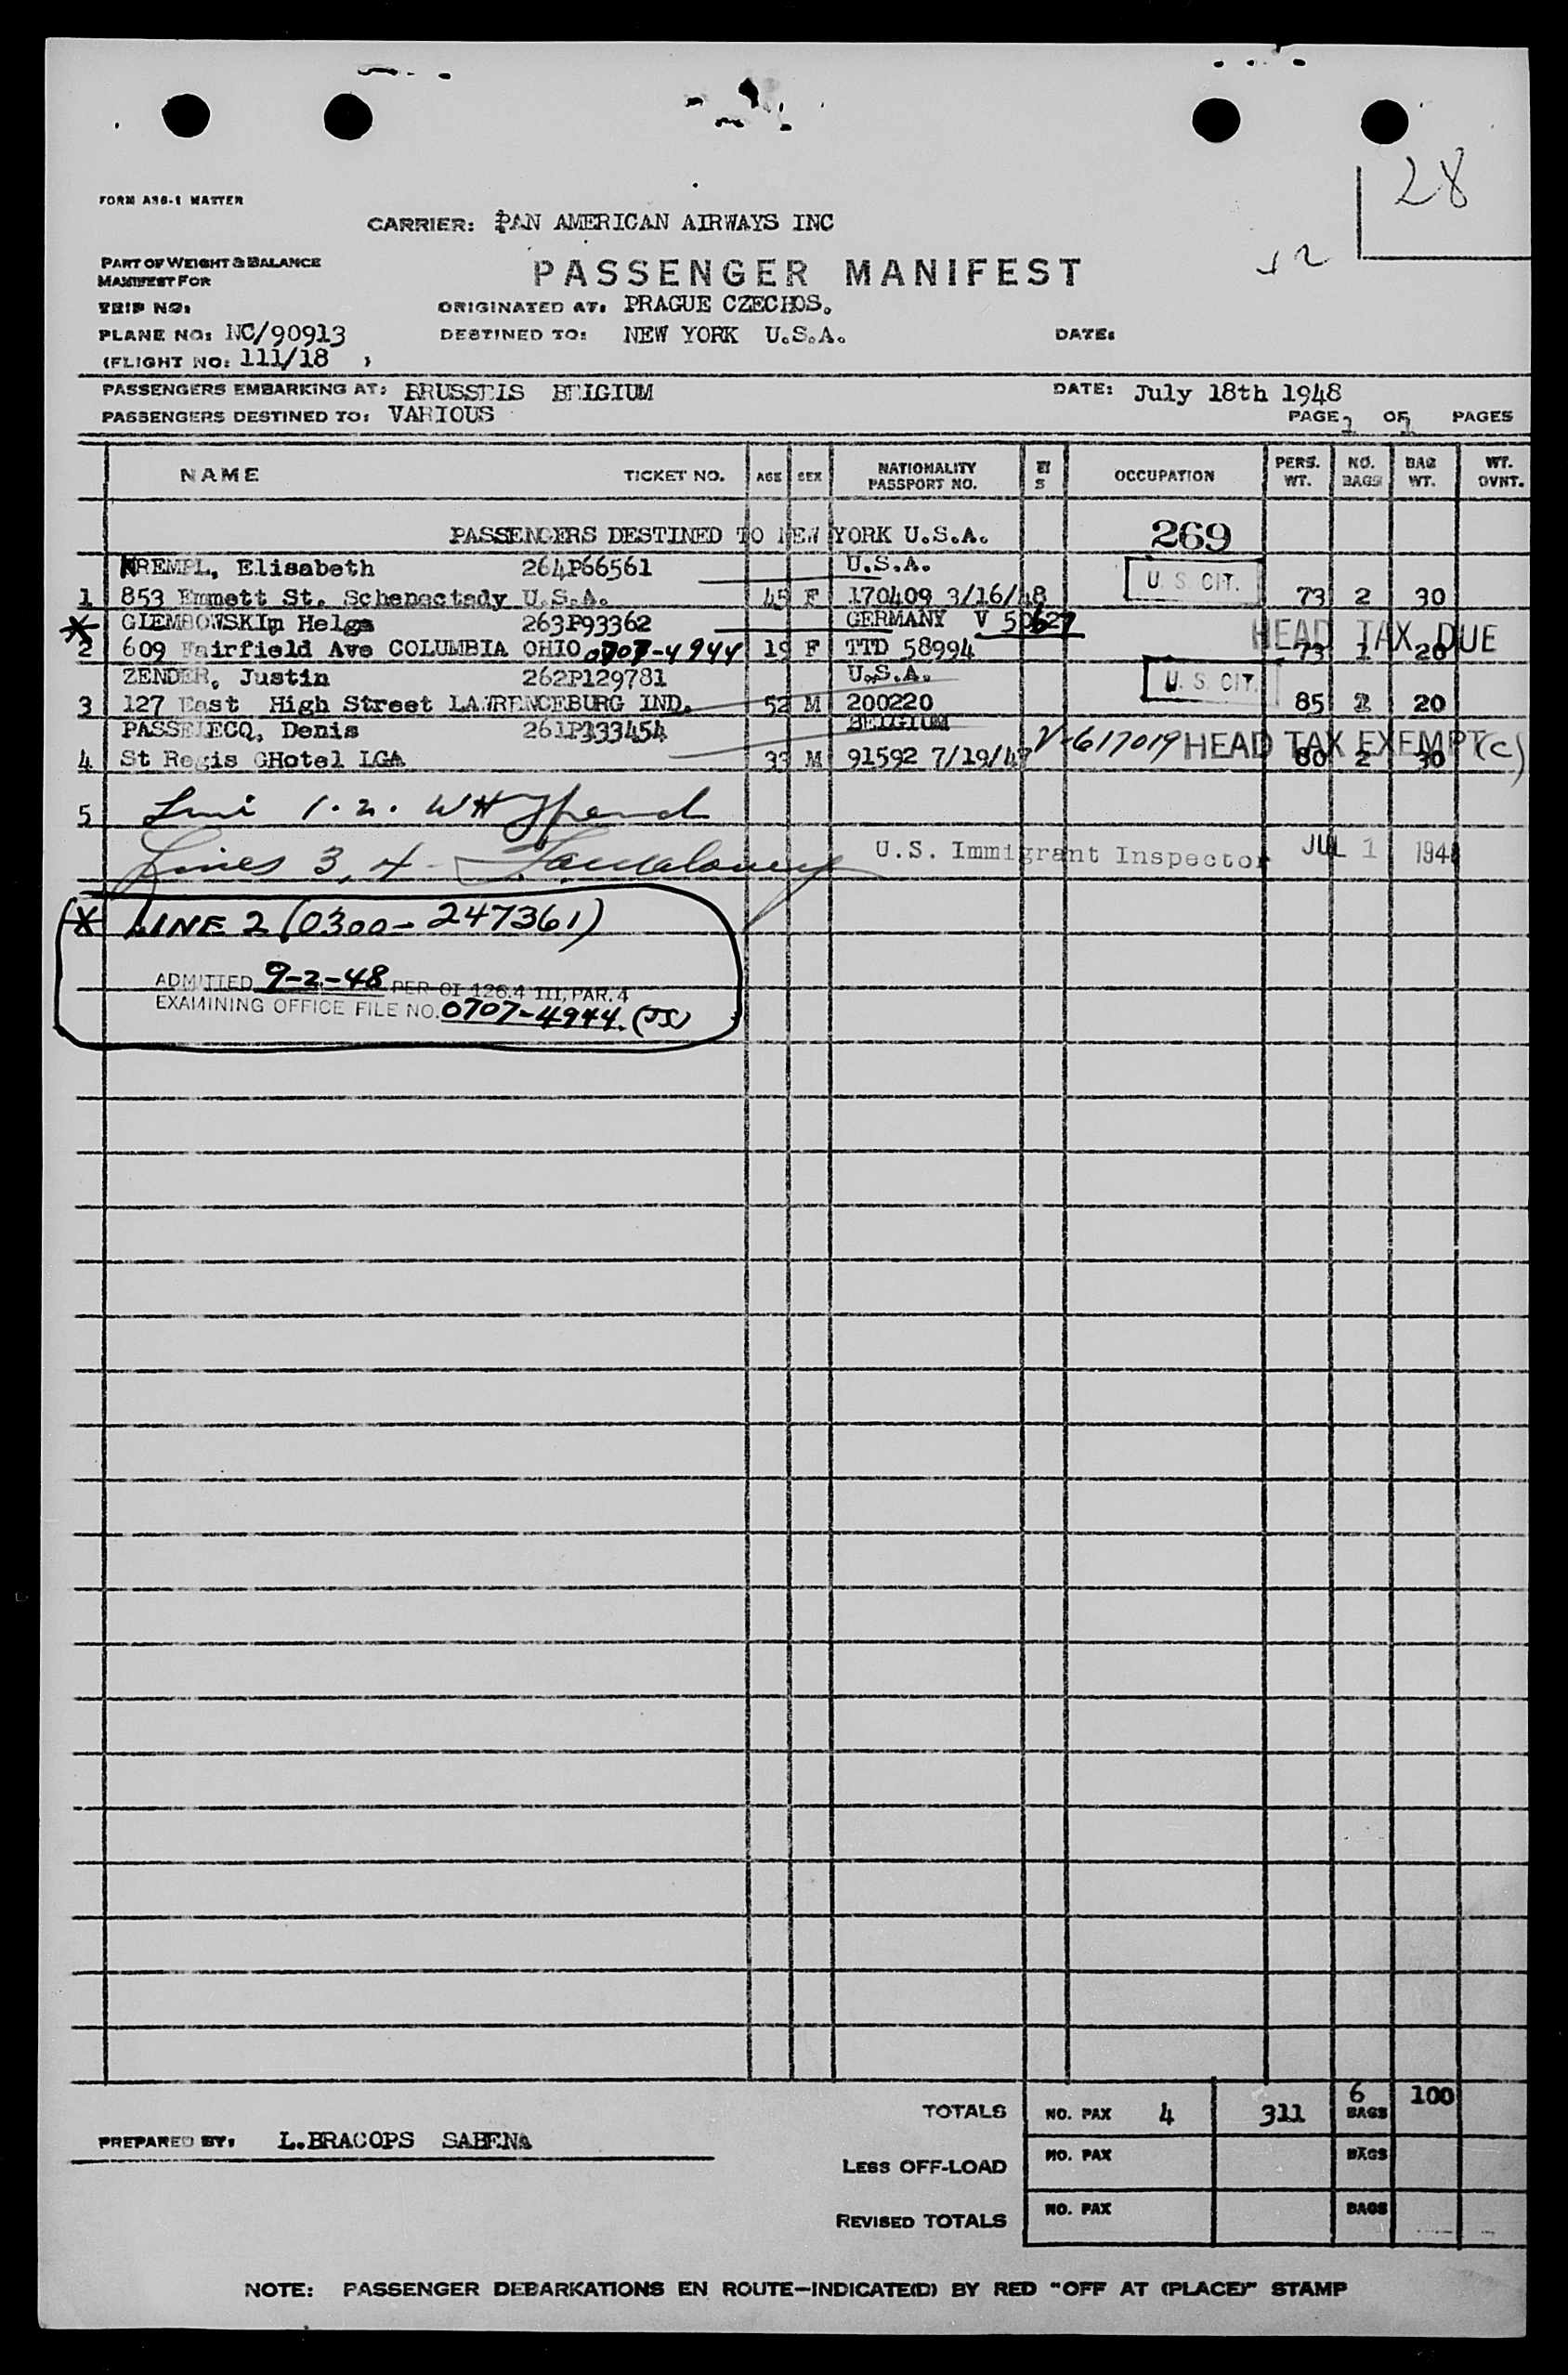 28
FORM A36-1 MASTER
CARRIER: PAN AMERICAN AIRWAYS INC
PART OF WEIGHT & BALANCE
MANIFEST FOR
PASSENGER MANIFEST
TRIP NO:
ORIGINATED AT: PRAGUE CZECHOS.
PLANE NO: NC/90913
DESTINED TO: NEW YORK U.S.A.
DATE:
(FLIGHT NO: 111/18 )
PASSENGERS EMBARKING AT: BRUSSELS BELGIUM
DATE: July 18th 1948
PASSENGERS DESTINED TO: VARIOUS
PAGE 1 OF 1 PAGES
NAME TICKET NO. AGE SEX NATIONALITY PASSPORT NO. OCCUPATION PERS. WT. NO. BAGS BAG WT. WT. OVNT.
PASSENGERS DESTINED TO NEW YORK U.S.A. 269
KREMPL, Elisabeth 264P66561 U.S.A. U. S. CIT.
1 853 Emmett St. Schenectady U.S.A. 45 F 170409 3/16/48 73 2 30
X GLEMBOWSKIp Helga 263P93362 GERMANY V 50627
2 609 Fairfield Ave COLUMBIA OHIO 0707-4944 19 F TTD 58994 73 1 20 HEAD TAX DUE
ZENDER, Justin 262P129781 U.S.A. U. S. CIT.
3 127 East High Street LAWRENCEBURG IND. 52 M 200220 85 2 20
PASSELECQ, Denis 261P333454 BELGIUM V-617019 HEAD TAX EXEMPT (C)
4 St Regis GHotel LGA 33 M 91592 7/19/47 80 2 30
5 1. 2.
Lines 3, 4 U.S. Immigrant Inspector JUL 1 194
X LINE 2 (0300-247361)
ADMITTED 9-2-48 PER OI 126.4 III, PAR. 4
EXAMINING OFFICE FILE NO. 0707-4944. (JS)
TOTALS NO. PAX 4 311 6 BAGS 100
PREPARED BY: L.BRACOPS SABENA
LESS OFF-LOAD NO. PAX BAGS
REVISED TOTALS NO. PAX BAGS
NOTE: PASSENGER DEBARKATIONS EN ROUTE—INDICATE(D) BY RED "OFF AT (PLACE)" STAMP